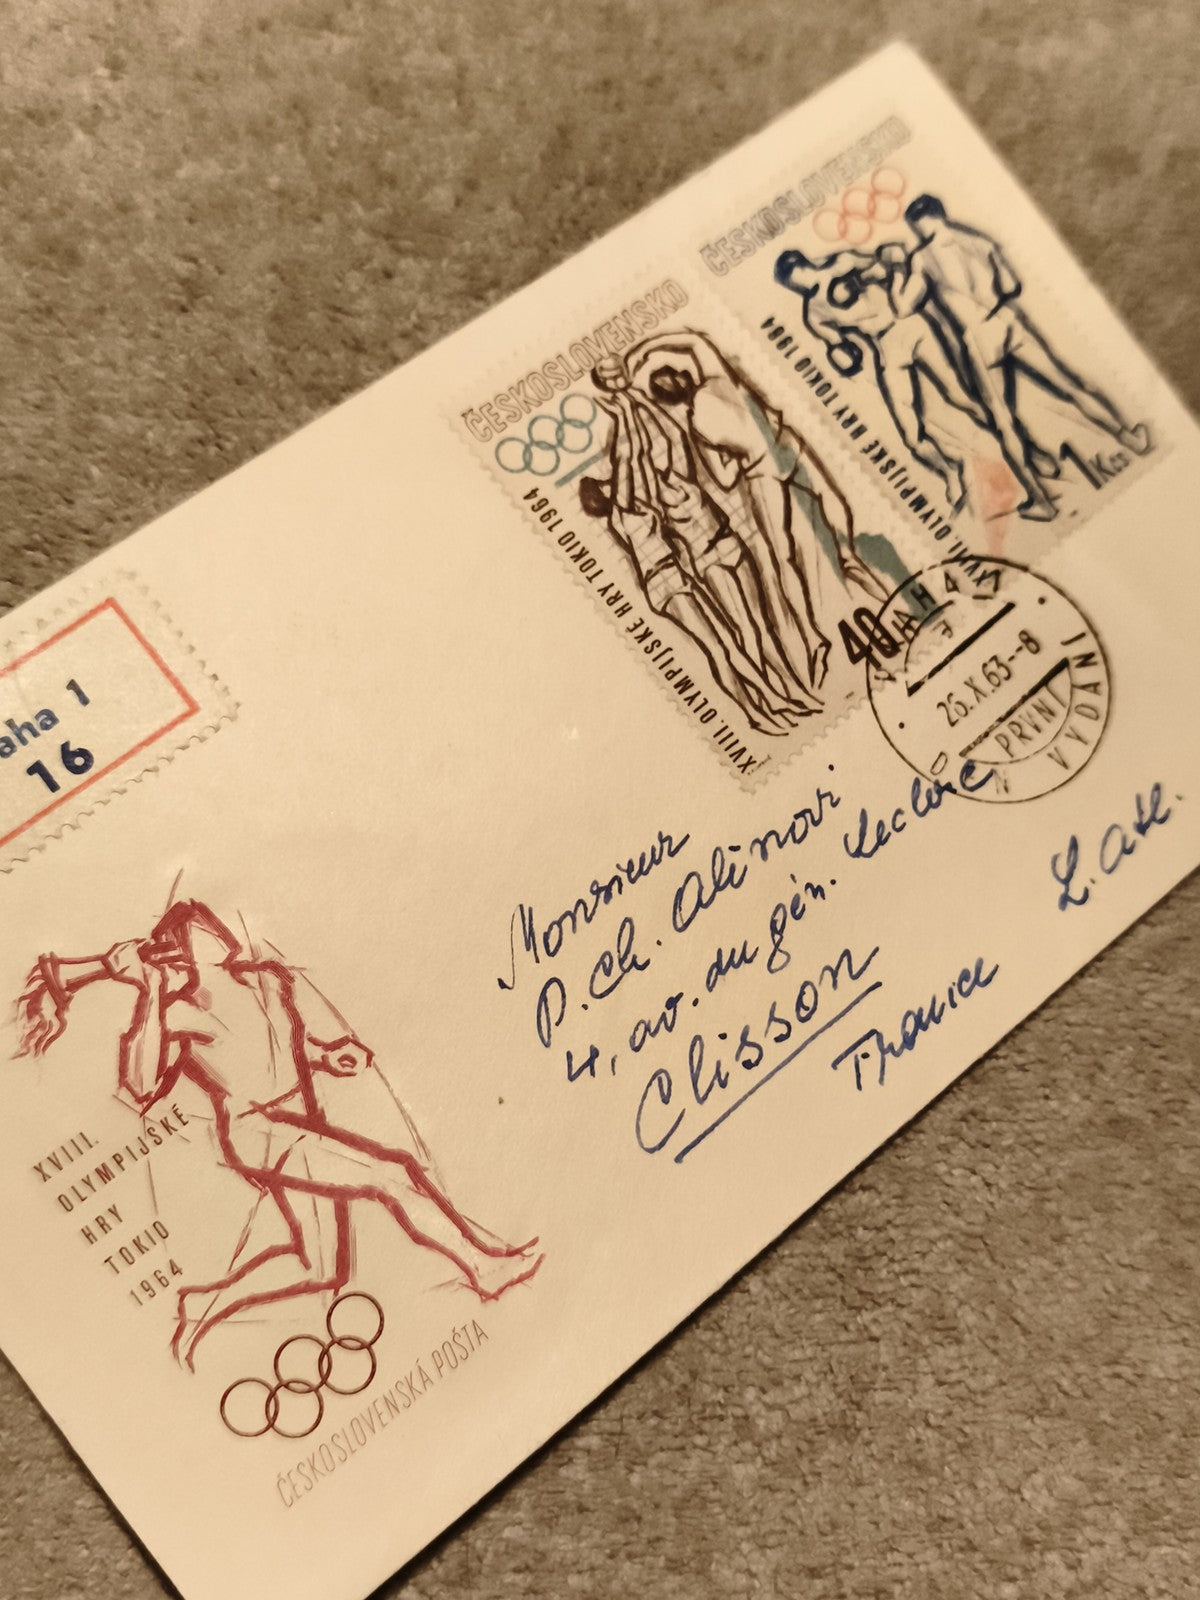 ČESKOSLOVENSKO
XVIII. OLYMPIJSKÉ HRY TOKIO 1964
1 Kčs
ČESKOSLOVENSKO
XVIII. OLYMPIJSKÉ HRY TOKIO 1964
40
26.X.63--8
PRVNÍ
DEN VYDÁNÍ
aha 1
16
Monsieur
P. Ch. Alinovi
4, av. du gén. Leclerc
Clisson
France
L. Atl.
XVIII.
OLYMPIJSKÉ
HRY
TOKIO
1964
ČESKOSLOVENSKÁ POŠTA